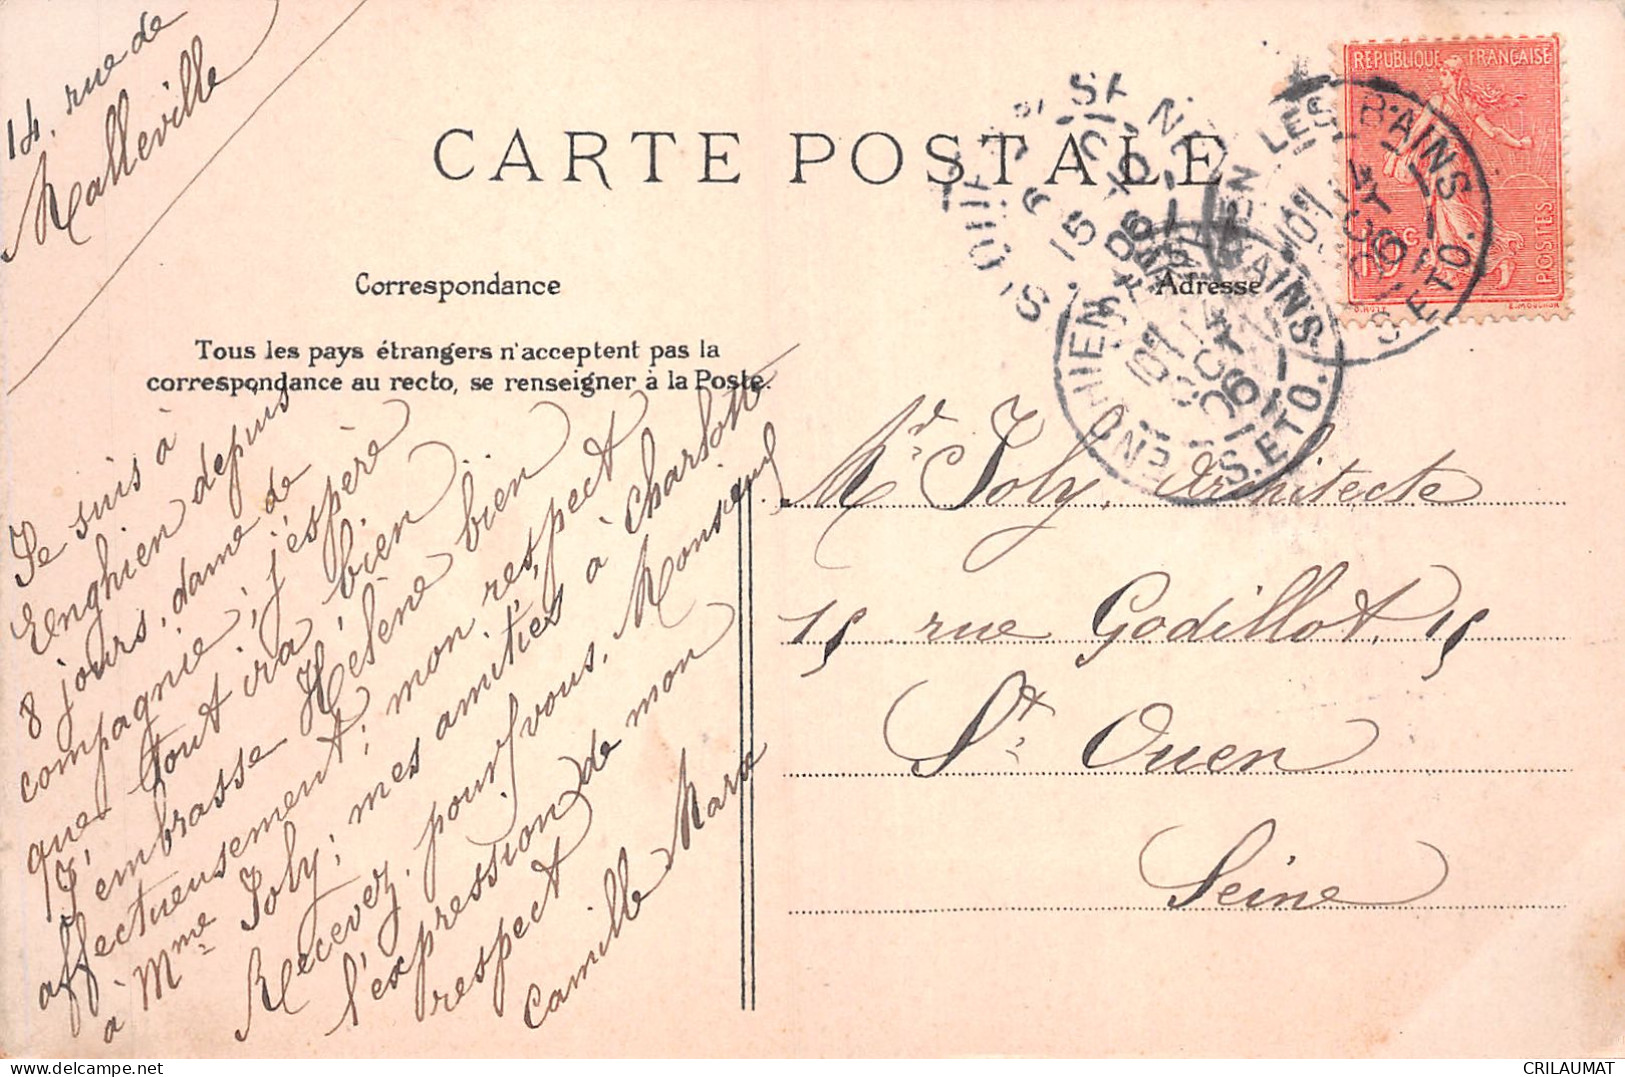 14, rue de
Malleville
CARTE POSTALE
Correspondance
Tous les pays étrangers n'acceptent pas la
correspondance au recto, se renseigner à la Poste.
Je suis à
Enghien depuis
8 jours, dame de
compagnie; j'espère
que tout ira bien
J'embrasse Hélène bien
affectueusement; mon respect
à Mme Joly; mes amitiés à Charlotte
Recevez, pour vous, Monsieur
l'expression de mon
respect
Camille Marie
Adresse
Mr Joly, Architecte
15 rue Godillot, 15
St Ouen
Seine
REPUBLIQUE FRANÇAISE
10c
POSTES
O. ROTY
E. MOUCHON
ENGHIEN LES BAINS
14
OCT
06
S.ET O.
ENGHIEN LES BAINS
14
OCT
06
S.ET O.
ST OUEN S/ SEINE
15
06
CRILAUMAT